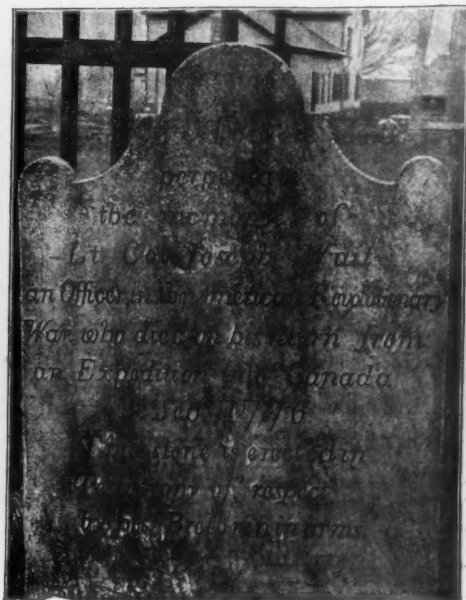 perpetuate
the memory of
Lt Col Joseph Wait
an Officer in the American Revolutionary
War who died on his return from
an Expedition into Canada
Sep 1776
This stone is erected in
of respect
by his Brethren in arms